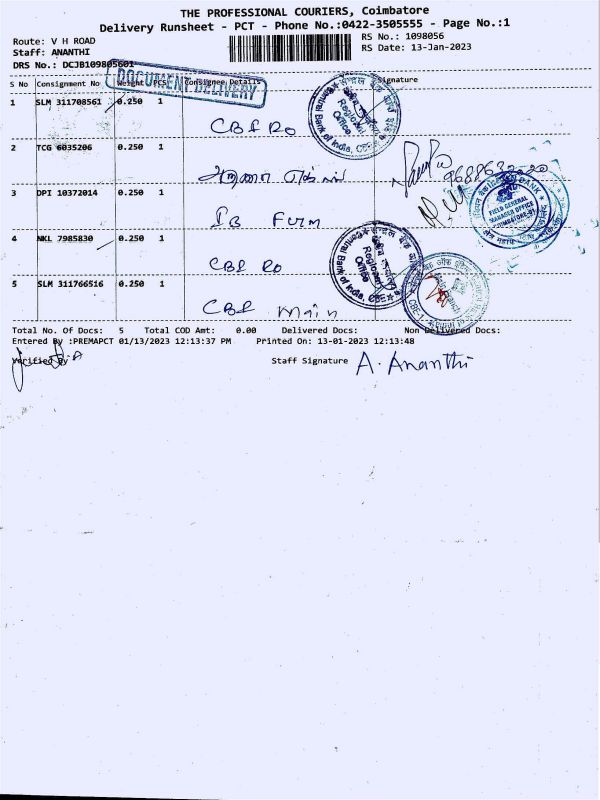 THE PROFESSIONAL COURIERS, Coimbatore
Delivery Runsheet - PCT - Phone No.:0422-3505555 - Page No.:1
Route: V H ROAD
RS No.: 1098056
Staff: ANANTHI
RS Date: 13-Jan-2023
DRS No.: DCJB109805601
DOCUMENT DELIVERY
S No Consignment No Weight PCS Consignee Details Signature
1 SLM 311708561 0.250 1
CBI RO
Central Bank of India, CBE
Regional Office
2 TCG 6035206 0.250 1
3 DPI 10372014 0.250 1
IB FGM
FIELD GENERAL
MANAGER OFFICE
4 NKL 7985830 0.250 1
CBI RO
Central Bank of India, CBE
Regional Office
5 SLM 311766516 0.250 1
CBI main
Total No. Of Docs: 5 Total COD Amt: 0.00 Delivered Docs: Non Delivered Docs:
Entered By :PREMAPCT 01/13/2023 12:13:37 PM Printed On: 13-01-2023 12:13:48
Verified By
Staff Signature A. Ananthi